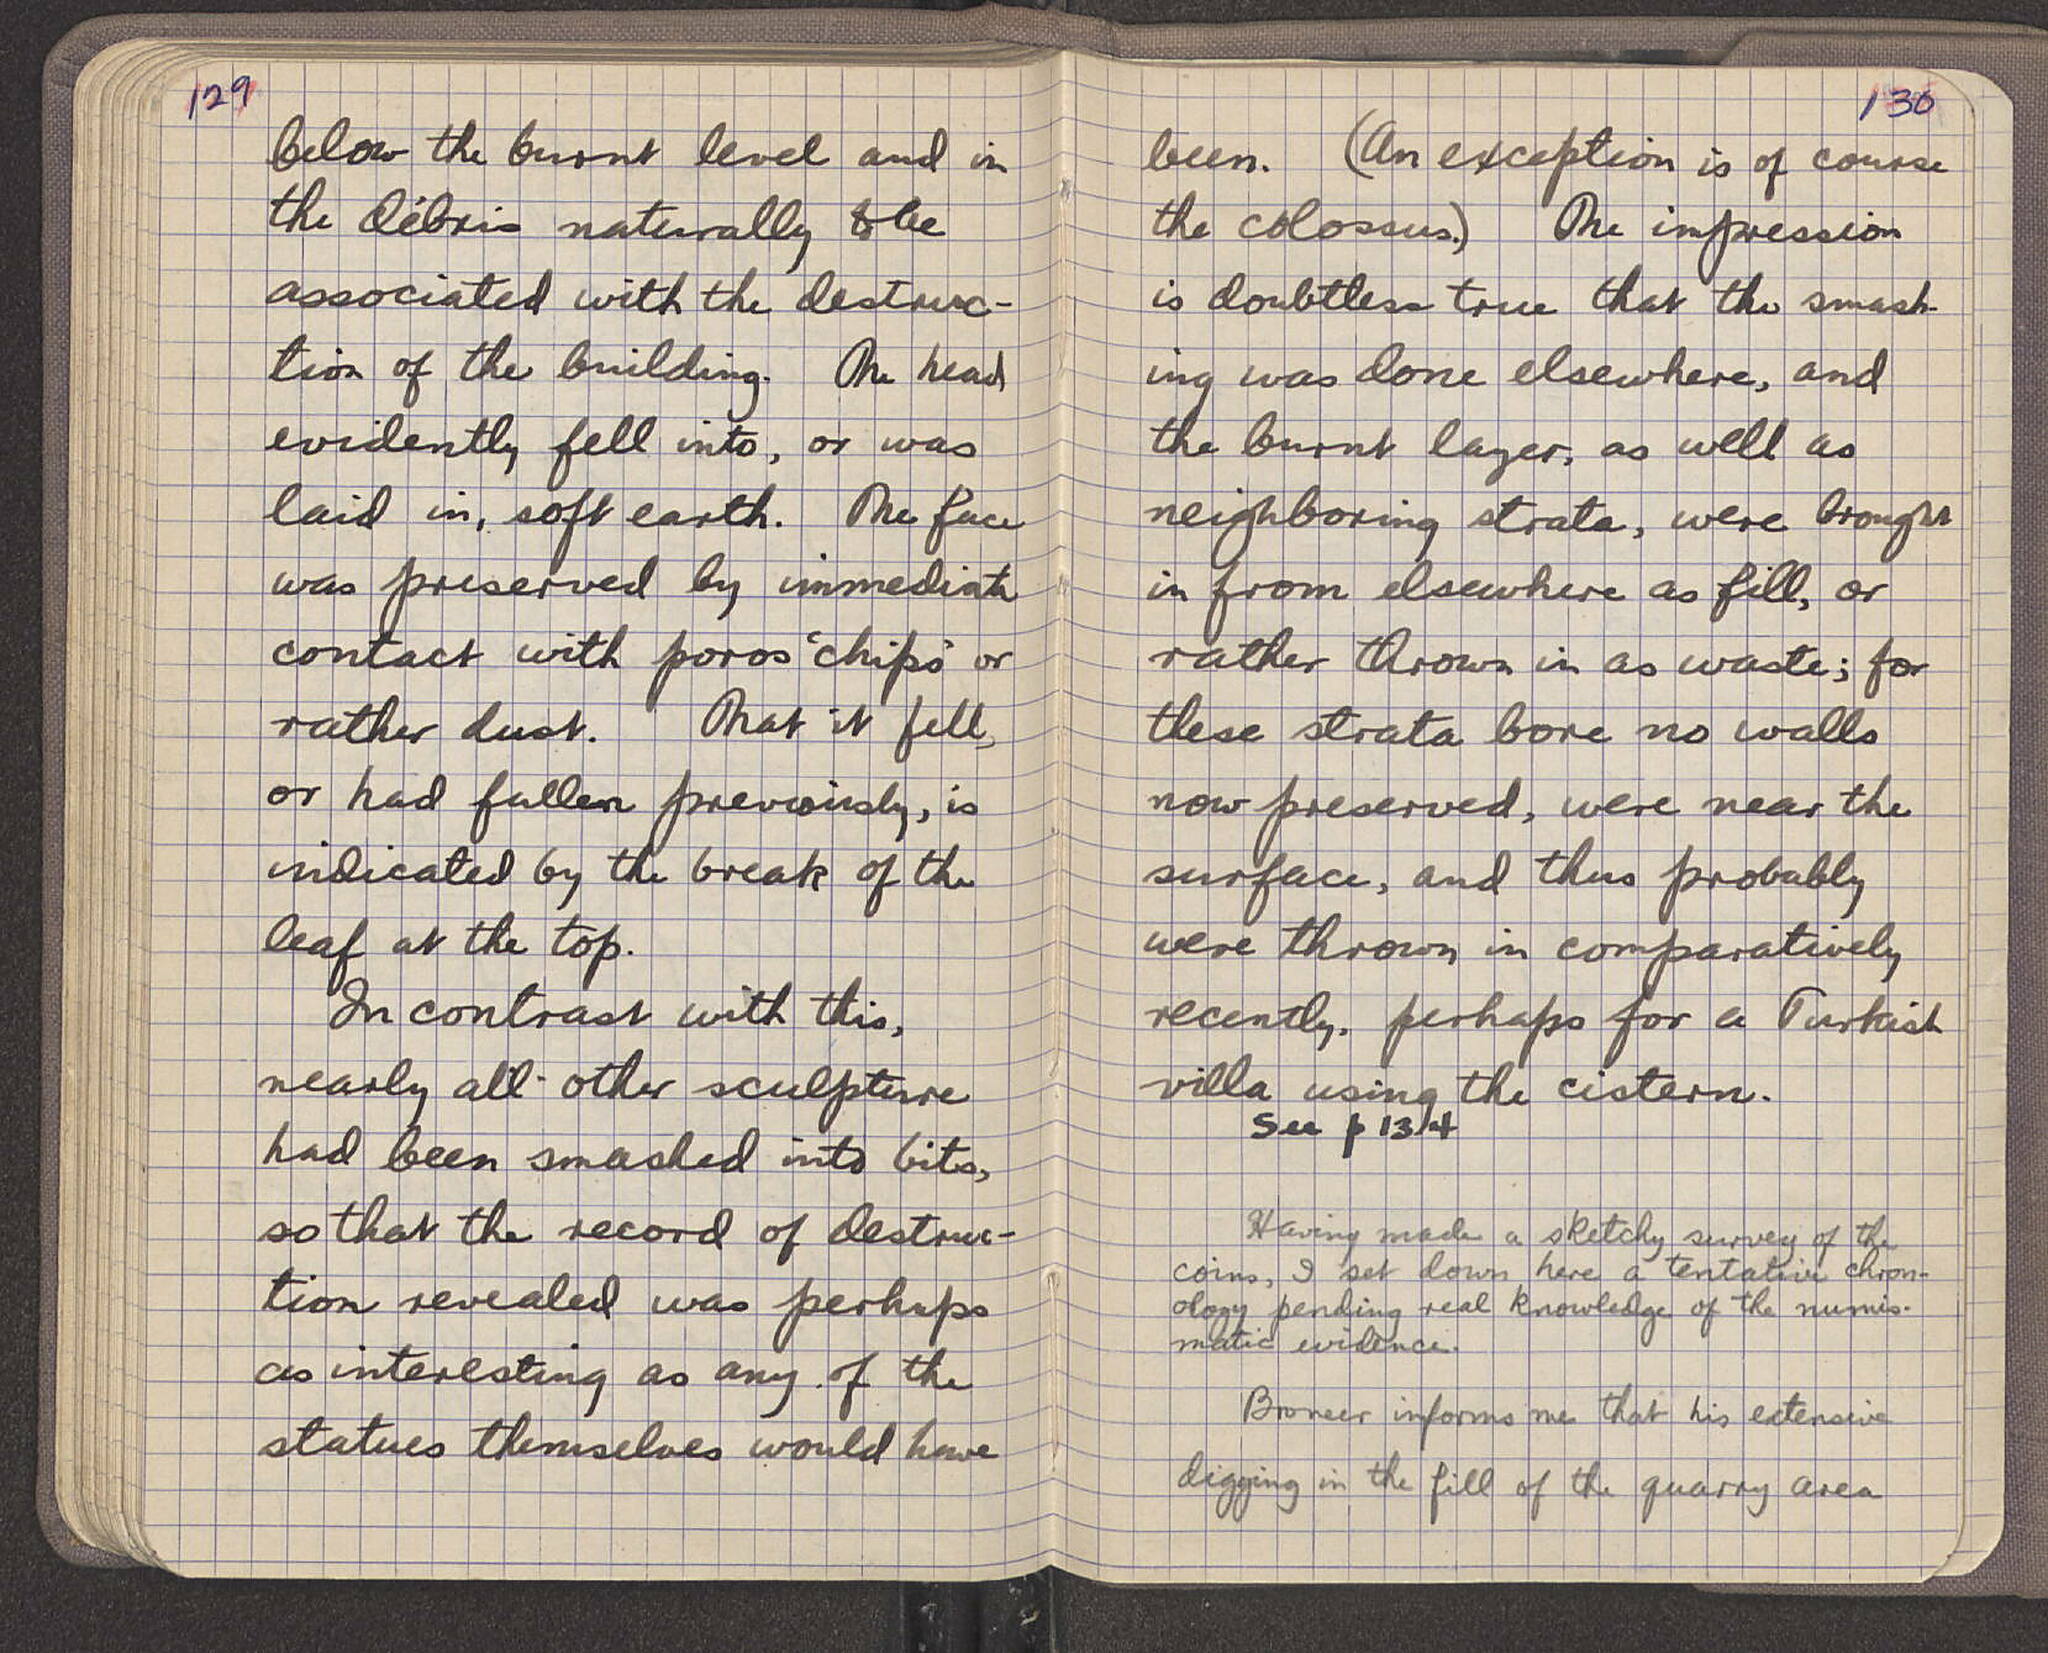 129
below the burnt level and in
the débris naturally to be
associated with the destruc-
tion of the building. The head
evidently fell into, or was
laid in, soft earth. The face
was preserved by immediate
contact with poros "chips" or
rather dust. That it fell,
or had fallen previously, is
indicated by the break of the
leaf at the top.
In contrast with this,
nearly all other sculpture
had been smashed into bits,
so that the record of destruc-
tion revealed was perhaps
as interesting as any of the
statues themselves would have
130
been. (An exception is of course
the colossus.) The impression
is doubtless true that the smash-
ing was done elsewhere, and
the burnt layer, as well as
neighboring strata, were brought
in from elsewhere as fill, or
rather thrown in as waste; for
these strata bore no walls
now preserved, were near the
surface, and thus probably
were thrown in comparatively
recently, perhaps for a Turkish
villa using the cistern.
See p 134
Having made a sketchy survey of the
coins, I set down here a tentative chron-
ology pending real knowledge of the numis-
matic evidence.
Broneer informs me that his extensive
digging in the fill of the quarry area